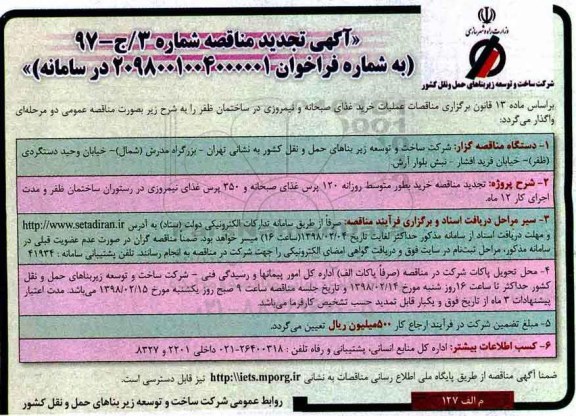 وزارت راه و شهرسازی
شرکت ساخت و توسعه زیربناهای حمل و نقل کشور
«آگهی تجدید مناقصه شماره ۳/ج-۹۷
(به شماره فراخوان ۲۰۹۸۰۰۱۰۰۴۰۰۰۰۰۱ در سامانه)»
براساس ماده ۱۳ قانون برگزاری مناقصات عملیات خرید غذای صبحانه و نیمروزی در ساختمان ظفر را به شرح زیر بصورت مناقصه عمومی دو مرحله‌ای
واگذار می‌گردد:
۱- دستگاه مناقصه گزار: شرکت ساخت و توسعه زیر بناهای حمل و نقل کشور به نشانی تهران - بزرگراه مدرس (شمال)- خیابان وحید دستگردی
(ظفر)- خیابان فرید افشار - نبش بلوار آرش.
۲- شرح پروژه: تجدید مناقصه خرید بطور متوسط روزانه ۱۲۰ پرس غذای صبحانه و ۳۵۰ پرس غذای نیمروزی در رستوران ساختمان ظفر و مدت
اجرای کار ۱۲ ماه.
۳- سیر مراحل دریافت اسناد و برگزاری فرآیند مناقصه: صرفاً از طریق سامانه تدارکات الکترونیکی دولت (ستاد) به آدرس http://www.setadiran.ir
و مهلت دریافت اسناد از سامانه مذکور، حداکثر لغایت تاریخ ۱۳۹۸/۰۲/۰۴ (ساعت ۱۶) میسر خواهد بود. ضمناً مناقصه گران در صورت عدم عضویت قبلی در
سامانه مذکور، مراحل ثبت‌نام در سایت فوق و دریافت گواهی امضای الکترونیکی را جهت شرکت در مناقصه به انجام رسانند. تلفن پشتیبانی سامانه: ۴۱۹۳۴
۴- محل تحویل پاکات شرکت در مناقصه (صرفاً پاکات الف) اداره کل امور پیمانها و رسیدگی فنی - شرکت ساخت و توسعه زیربناهای حمل و نقل
کشور حداکثر تا ساعت ۱۶ روز شنبه مورخ ۱۳۹۸/۰۲/۱۴ و تاریخ جلسه مناقصه ساعت ۹ صبح روز یکشنبه مورخ ۱۳۹۸/۰۲/۱۵ می‌باشد. مدت اعتبار
پیشنهادات ۳ ماه از تاریخ فوق و یکبار قابل تمدید حسب تشخیص کارفرما می‌باشد.
۵- مبلغ تضمین شرکت در فرآیند ارجاع کار ۵۰۰میلیون ریال تعیین می‌گردد.
۶- کسب اطلاعات بیشتر: اداره کل منابع انسانی، پشتیبانی و رفاه تلفن: ۲۶۴۰۰۳۱۸-۰۲۱ داخلی ۲۲۰۱ و ۸۳۲۷.
ضمناً آگهی مناقصه از طریق پایگاه ملی اطلاع رسانی مناقصات به نشانی http:\\iets.mporg.ir نیز قابل دسترسی است.
م الف ۱۲۷
روابط عمومی شرکت ساخت و توسعه زیر بناهای حمل و نقل کشور